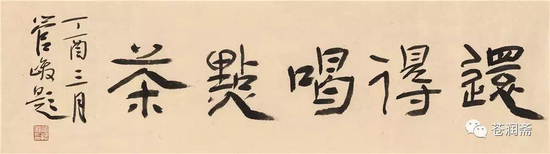 還得喝點茶
丁酉三月
管峻題
苍润斋